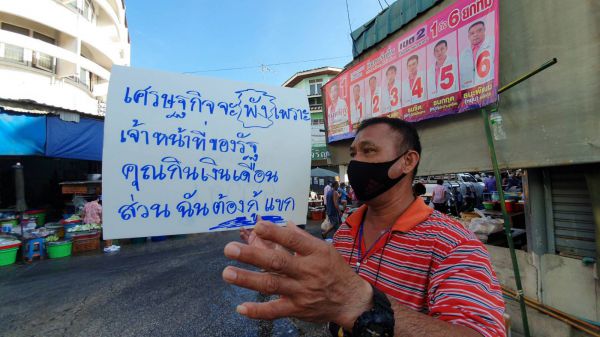 เศรษฐกิจจะพังเพราะ
เจ้าหน้าที่ของรัฐ
คุณกินเงินเดือน
ส่วน ฉันต้องกู้ แขก
เขต 2
1 ถึง 6 ยกทีม
1
2
3
4
5
6